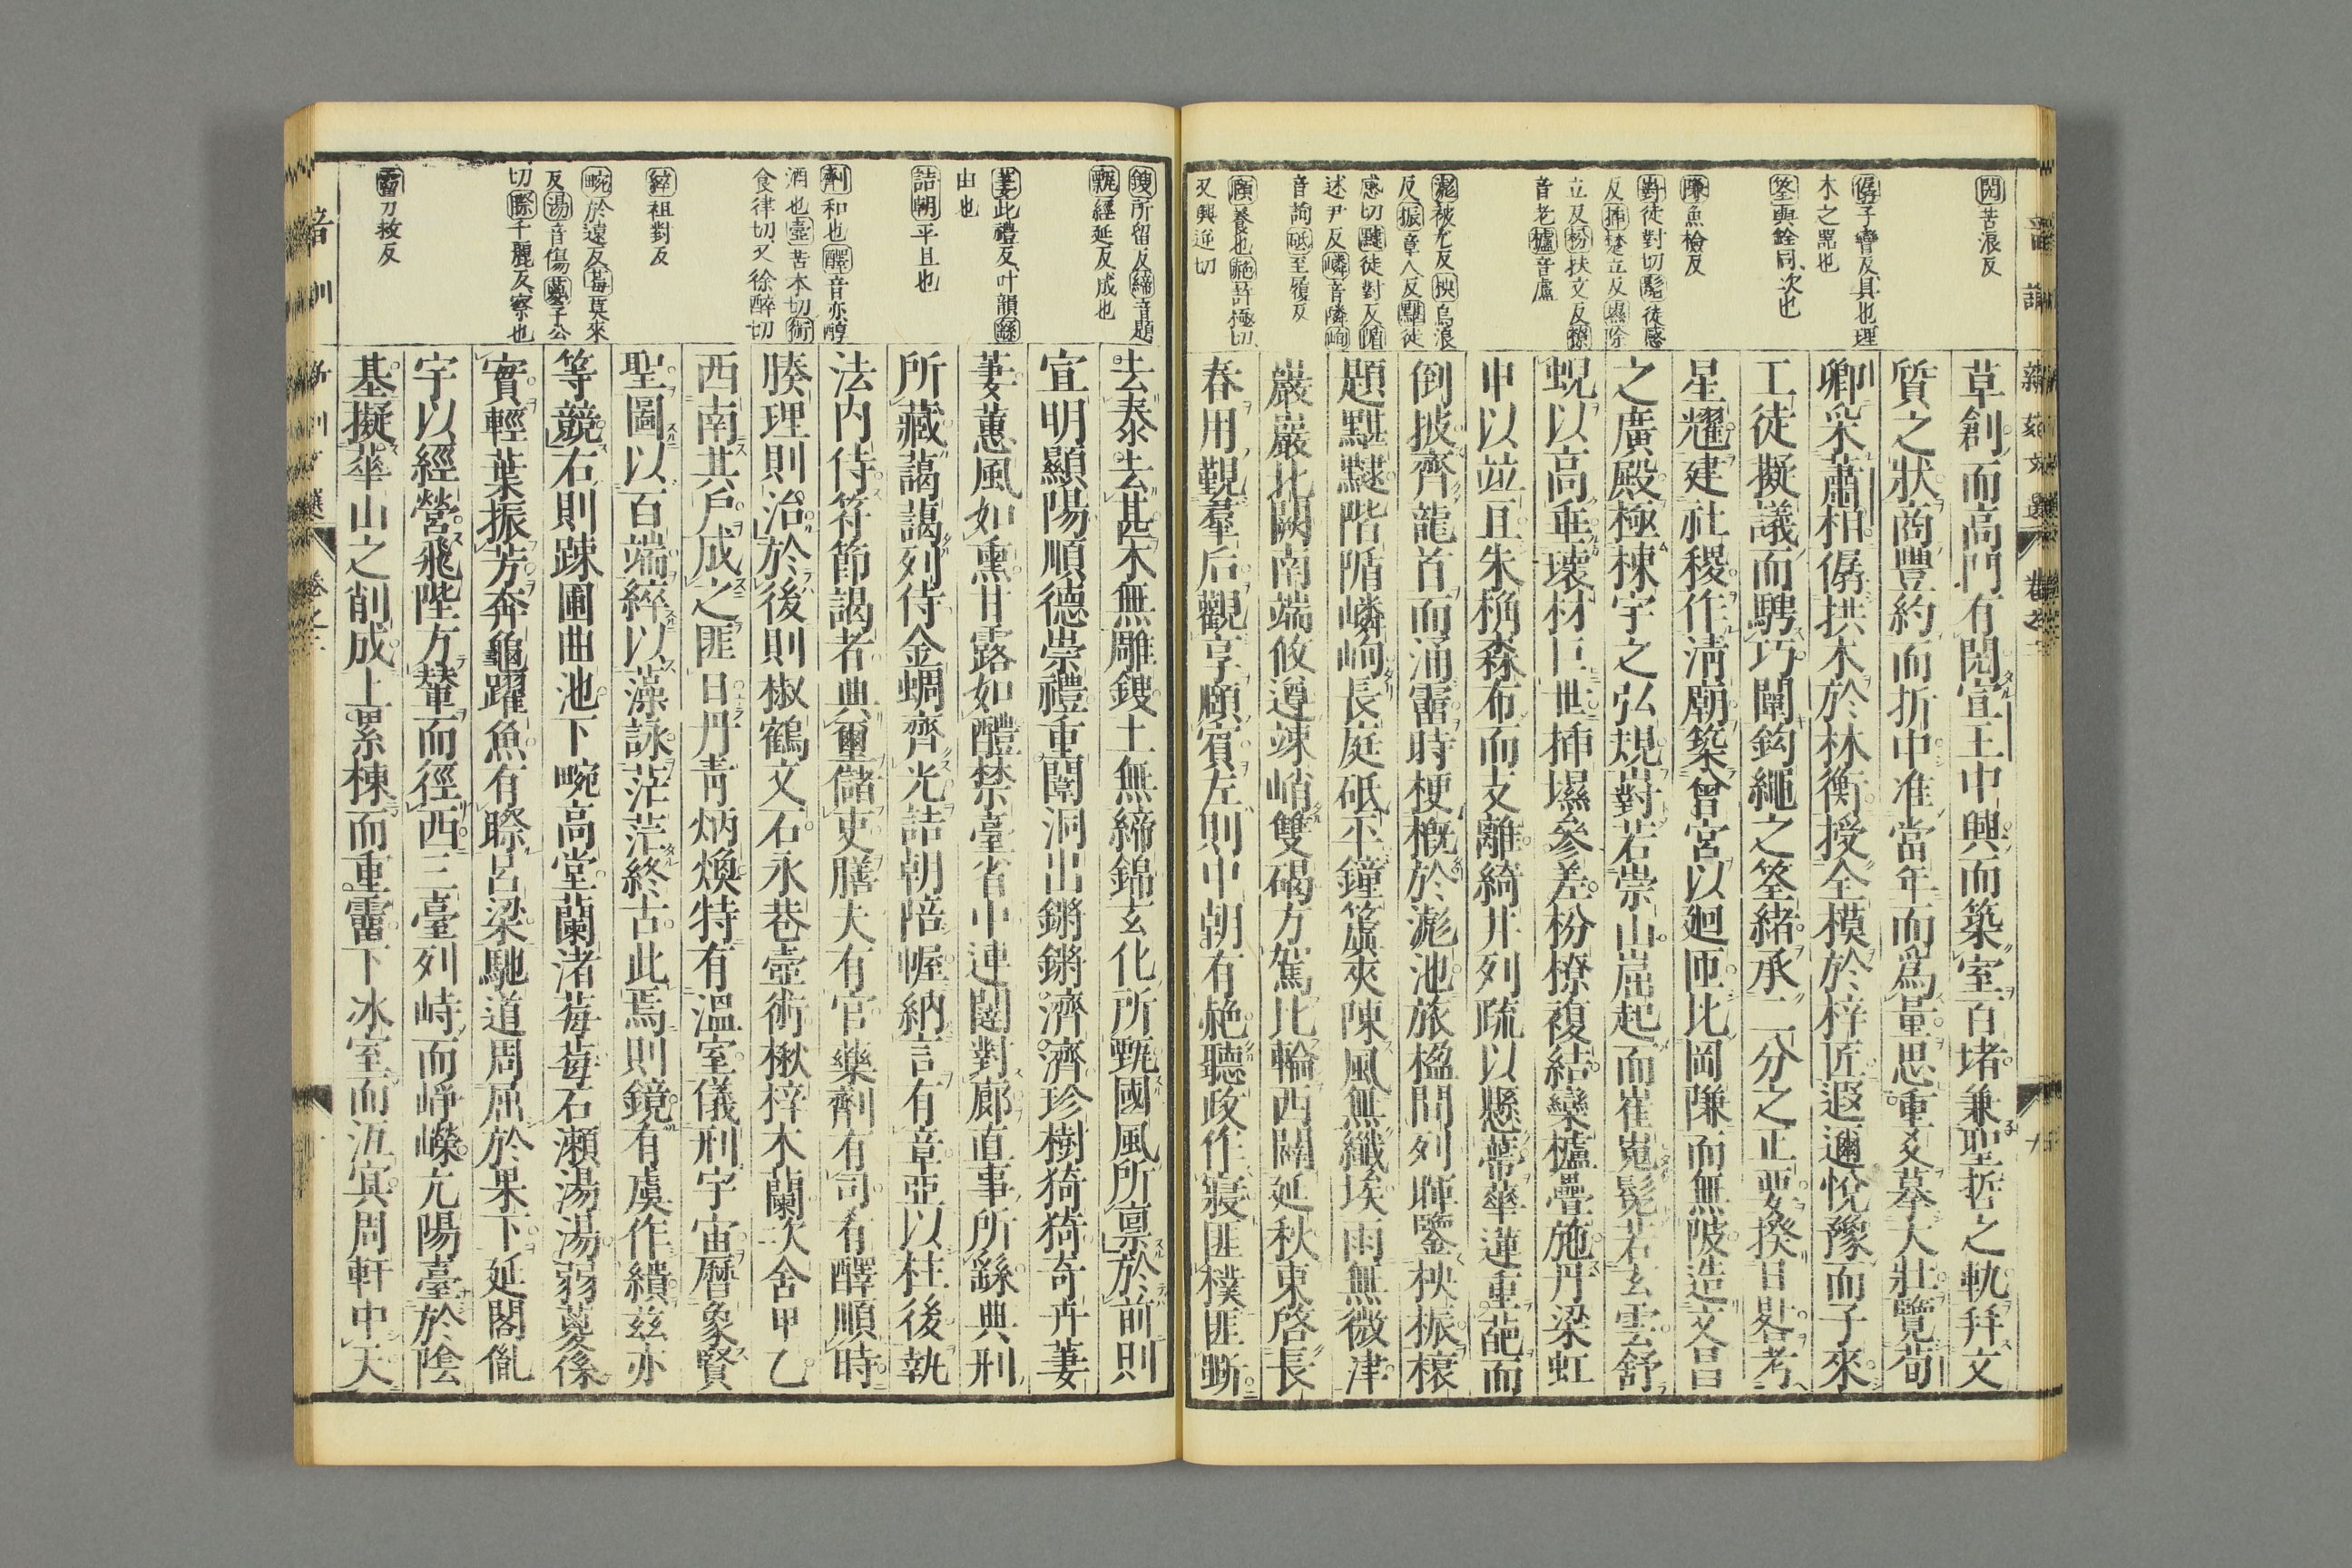 音訓
新刻文選
卷之
閌苦浪反
僝子眷反具也理
木之器也
筌與銓同次也
隒魚檢反
對徒對切髧徒感
反插楚立反㙷除
立反枌扶文反橑
音老櫨音盧
滮被尤反柍烏浪
反桭章人反黮徒
感切䨴徒對反隋
述尹反嶙音隣峋
音詢砥至履反
頤養也赩許極切
又興逆切
草創而高門有閌宣王中興而築室百堵兼聖哲之軌幷文
質之狀商豐約而折中准當年而爲量思重爻摹大壯覽荀
卿采蕭相僝拱木於林衡授全模於梓匠遐邇悅豫而子來
工徒擬議而騁巧闡鈎繩之筌緒承二分之正要揆日晷考
星耀建社稷作淸廟築曾宮以廻匝比岡隒而無陂造文昌
之廣殿極棟宇之弘規對若崇山崛起而崔嵬髧若玄雲舒
蜺以高垂瓌材巨世插㙷參差枌橑複結欒櫨疊施丹梁虹
申以竝亘朱桷森布而支離綺井列疏以懸蔕華蓮重葩而
倒披齊龍首而涌霤時梗槪於滮池旅楹閒列暉鑒柍桭榱
題黮䨴階隋嶙峋長庭砥平鐘簴夾陳風無纖埃雨無微津
巖巖北闕南端攸遵竦峭雙碣方駕比輪西闢延秋東啓長
春用覲羣后觀享頤賓左則中朝有赩聽政作寢匪樸匪斲
鎪所留反綈音題
甄經延反成也
萋此禮反叶韻繇
由也
詰朝平旦也
劑和也醳音亦醇
酒也壼苦本切術
食律切又徐醉切
綷祖對反
畹於遠反莓莫來
反湯音傷葼子公
切䁲千麗反察也
霤力救反
去泰去甚木無雕鎪土無綈錦玄化所甄國風所禀於前則
宣明顯陽順德崇禮重闈洞出鏘鏘濟濟珍樹猗猗奇卉萋
萋蕙風如薰甘露如醴禁臺省中連闥對廊直事所繇典刑
所藏藹藹列侍金蜩齊光詰朝陪幄納言有章亞以柱後執
法内侍符節謁者典璽儲吏膳夫有官藥劑有司肴醳順時
腠理則治於後則椒鶴文石永巷壼術楸梓木蘭次舍甲乙
西南其戶成之匪日丹青炳煥特有溫室儀刑宇宙曆象賢
聖圖以百瑞綷以藻詠茫茫終古此焉則鏡有虞作繢茲亦
等競右則踈圃曲池下畹高堂蘭渚莓莓石瀨湯湯弱葼係
實輕葉振芳奔龜躍魚有䁲呂梁馳道周屈於果下延閣胤
宇以經營飛陛方輦而徑西三臺列峙而崢嶸亢陽臺於陰
基擬華山之削成上累棟而重霤下冰室而沍冥周軒中天
音訓